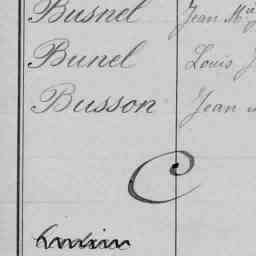 Busnel Jean M.
Bunel Louis J
Busson Jean
C